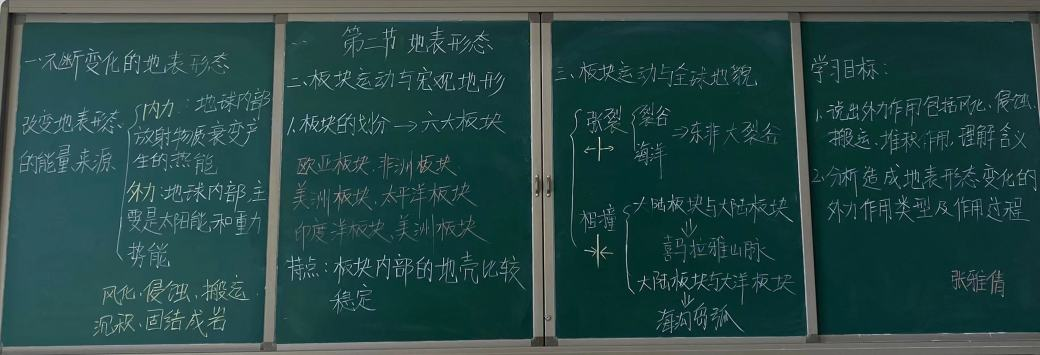 一、不断变化的地表形态
改变地表形态
的能量来源
内力：地球内部
放射物质衰变产
生的热能
外力：地球内部主
要是太阳能和重力
势能
风化、侵蚀、搬运、
沉积、固结成岩
第二节 地表形态
二、板块运动与宏观地形
1.板块的划分→六大板块
欧亚板块、非洲板块、
美洲板块、太平洋板块
印度洋板块、美洲板块
特点：板块内部的地壳比较
稳定
三、板块运动与全球地貌
张裂
裂谷
海洋
⇒东非大裂谷
相撞
大陆板块与大陆板块
⇓
喜马拉雅山脉
大陆板块与大洋板块
⇓
海沟岛弧
学习目标：
1.说出外力作用包括风化、侵蚀、
搬运、堆积作用，理解含义
2.分析造成地表形态变化的
外力作用类型及作用过程
张雅倩